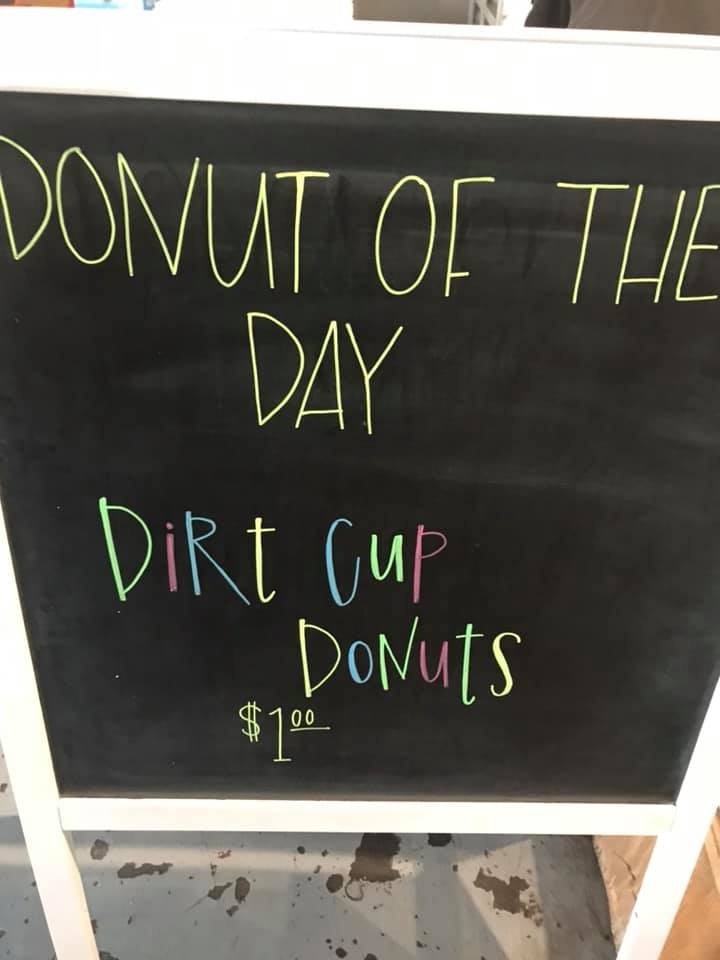 DONUT OF THE
DAY
DiRt Cup
DoNuts
$1.00